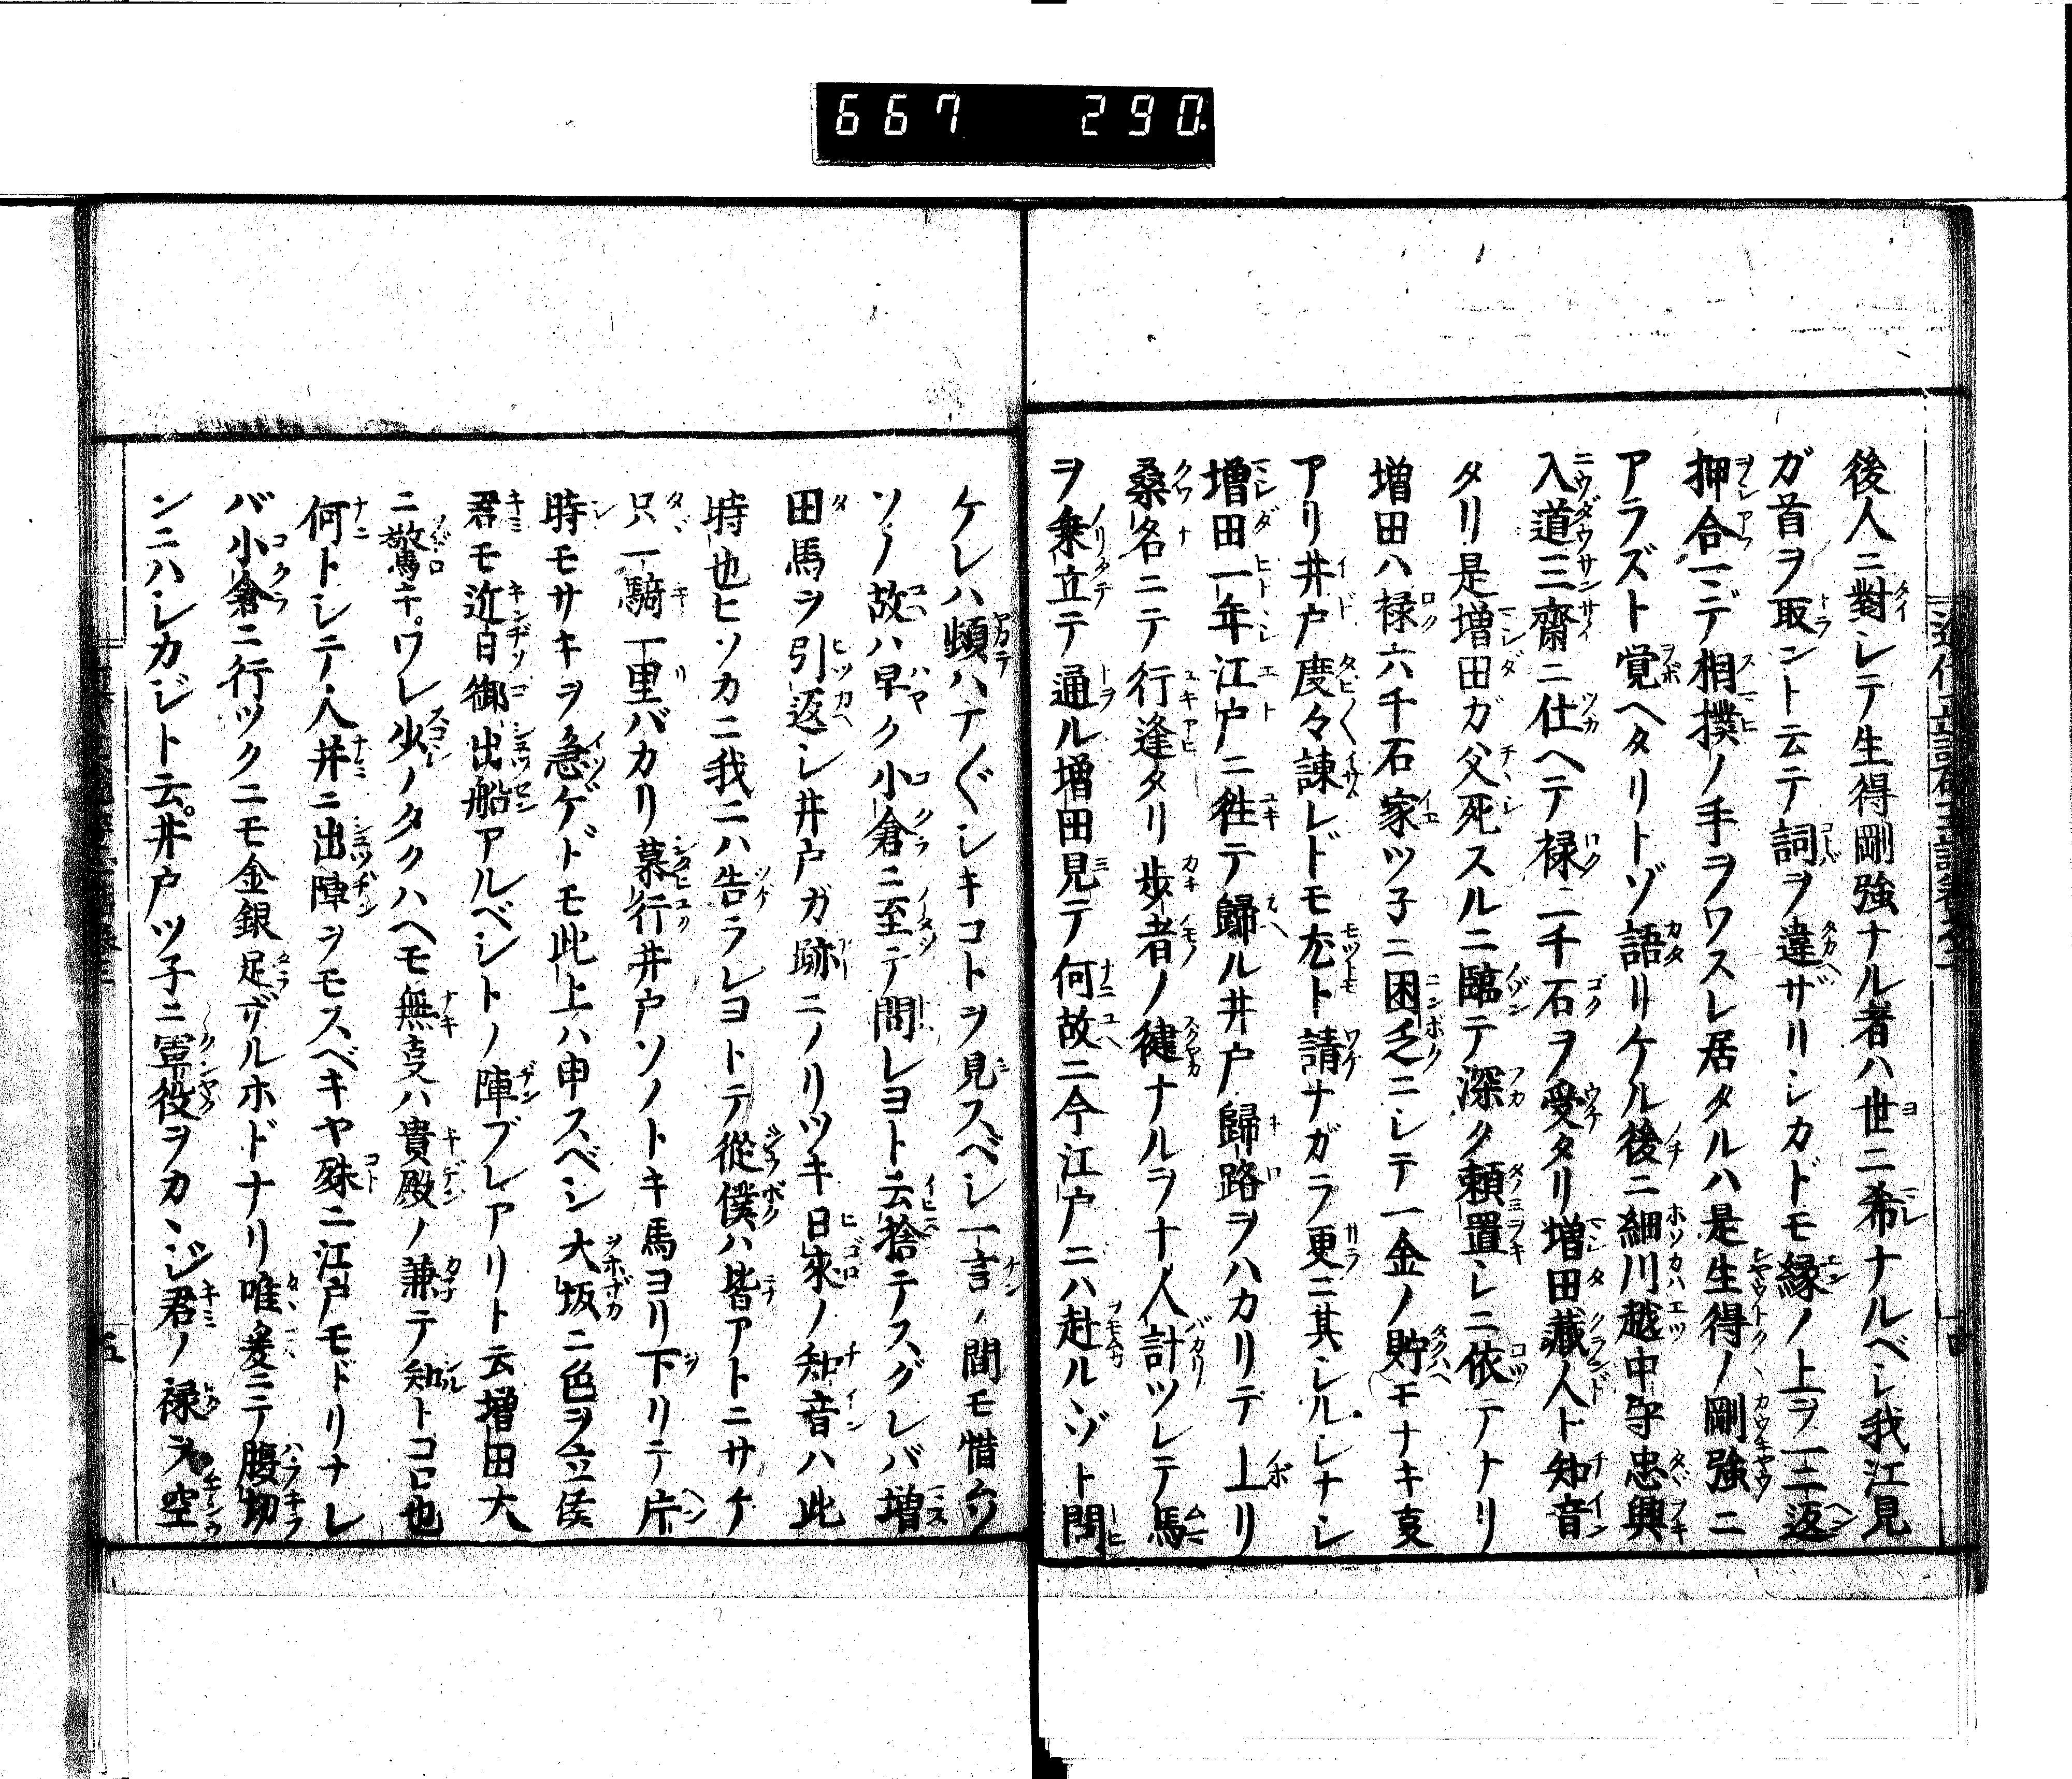 667 290
後人ニ對シテ生得剛強ナル者ハ世ニ希ナルベシ我江見
ガ首ヲ取ント云テ詞ヲ違ザリシカドモ縁ノ上ヲ二三返
押合ニデ相撲ノ手ヲワスレ居タルハ是生得ノ剛強ニ
アラズト覚ヘタリトゾ語リケル後ニ細川越中守忠興
入道三齋ニ仕ヘテ禄二千石ヲ受タリ増田藏人ト知音
タリ是増田ガ父死スルニ臨テ深ク頼置シニ依テナリ
増田ハ禄六千石家ツ子ニ困乏ニシテ一金ノ貯モナキ支
アリ井戸度々諌レドモ尤ト請ナガラ更ニ其シルシナシ
増田一年江戸ニ徃テ歸ル井戸歸路ヲハカリテ上リ
桑名ニテ行逢タリ歩者ノ健ナルヲ十人計ツレテ馬
ヲ乗立テ通ル増田見テ何故ニ今江戸ニハ赴ルゾト問
ケレハ頓ハナ〲シキコトヲ見スベシ一言ノ間モ惜ケ
ソノ故ハ早ク小倉ニ至テ問レヨト云捨テスグレバ増
田馬ヲ引返シ井戸ガ跡ニノリツキ日來ノ知音ハ此
時也ヒソカニ我ニハ告ラレヨトテ從僕ハ皆アトニサケ
只一騎一里バカリ慕行井戸ソノトキ馬ヨリ下リテ片
時モサキヲ急ゲドモ此上ハ申スベシ大坂ニ色ヲ立侯
君モ近日御出船アルベシトノ陣ブレアリト云増田大
ニ驚テワレ少ノタクハヘモ無支ハ貴殿ノ兼テ知トコロ也
何トシテ人井ニ出陣ヲモスベキヤ殊ニ江戸モドリナレ
バ小倉ニ行ツクニモ金銀足ザルホドナリ唯爰ニテ腹切
ンニハシカジト云井戸ツ子ニ軍役ヲカヽジ君ノ禄ヲ空